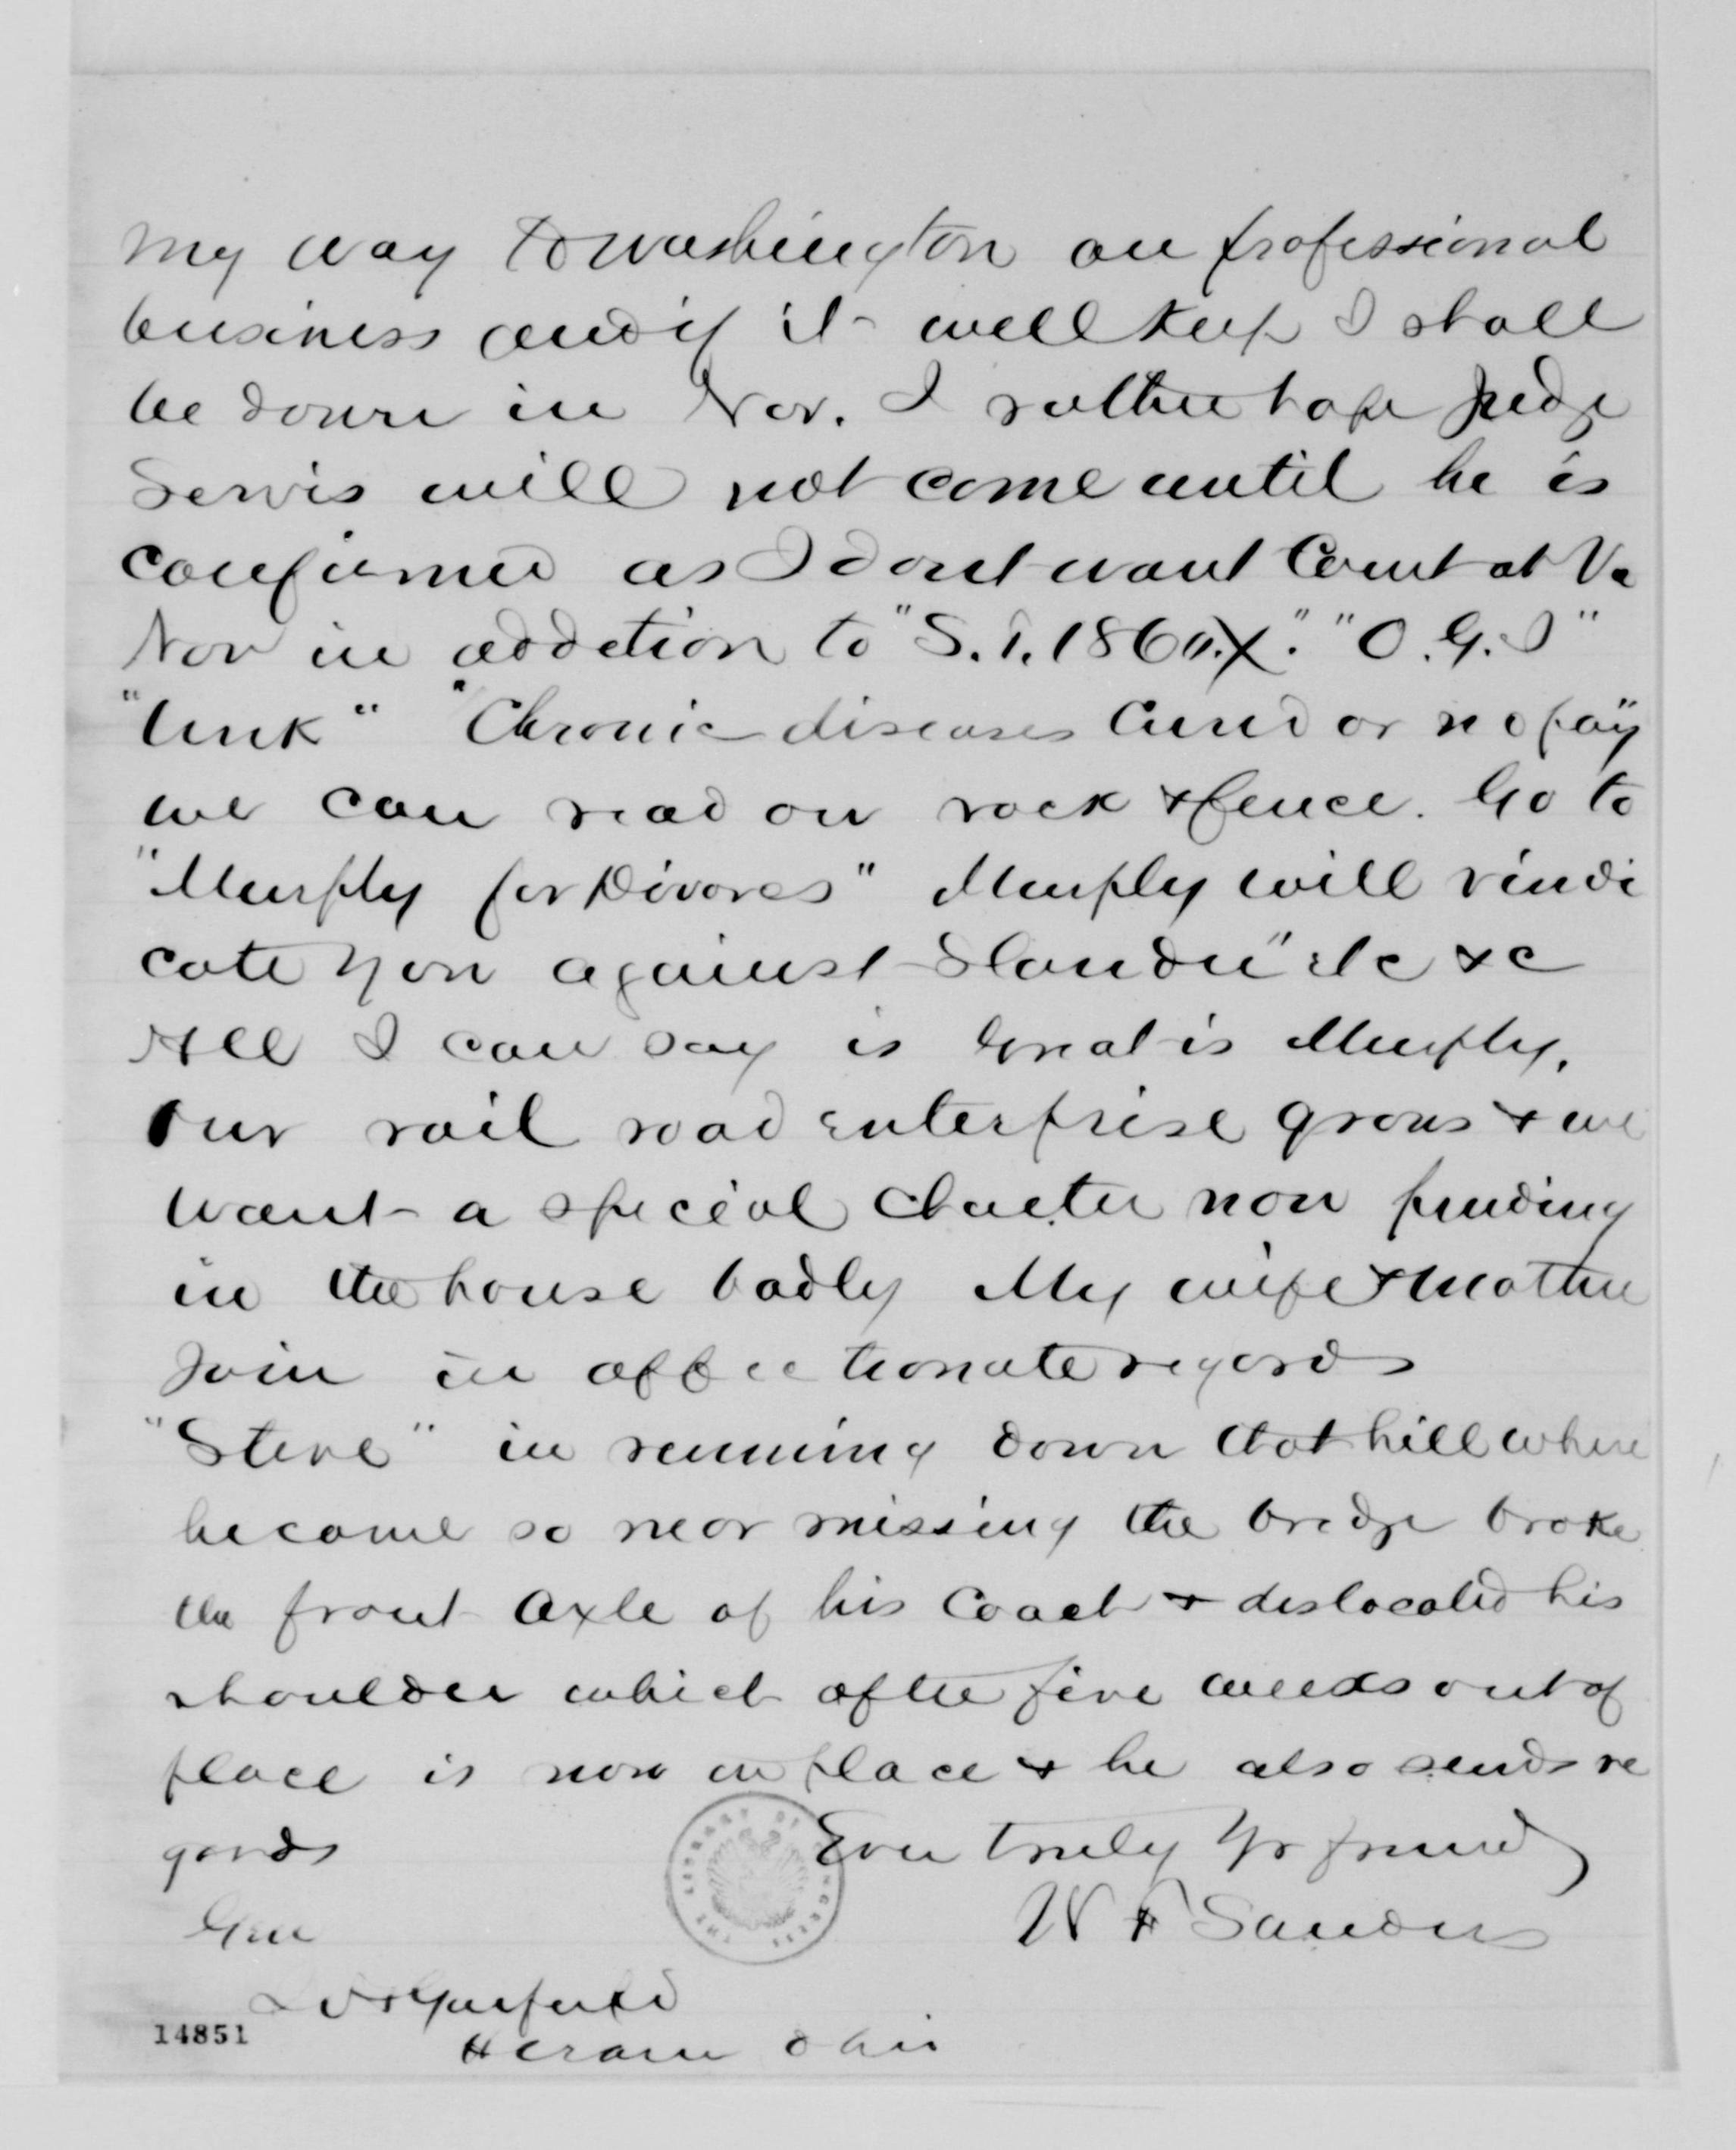 my way to Washington on professional
business and if it will keep I shall
be down in Nov. I rather hope Judge
Servis will not come until he is
confirmed as I dont want Court at Va
Nov in addition to "S.T. 1860.X." "O.G.S"
"Unk" "Chronic diseases Cured or no pay"
we can read on rock & fence. Go to
"Murphy for Divorces" Murphy will vindi
cate you against Slander" etc &c
All I can say is Great is Murphy.
Our rail road enterprise grows & we
want a special charter now pending
in the house badly My wife & Mother
Join in affectionate regards
"Steve" in running down that hill where
he came so near missing the bridge broke
the front axle of his Coach & dislocated his
shoulder which after five weeks out of
place is now in place & he also sends re
gards
Ever truly Yr friend
W F Sanders
Gen
J A Garfield
Hiram Ohio
14851
THE LIBRARY OF CONGRESS